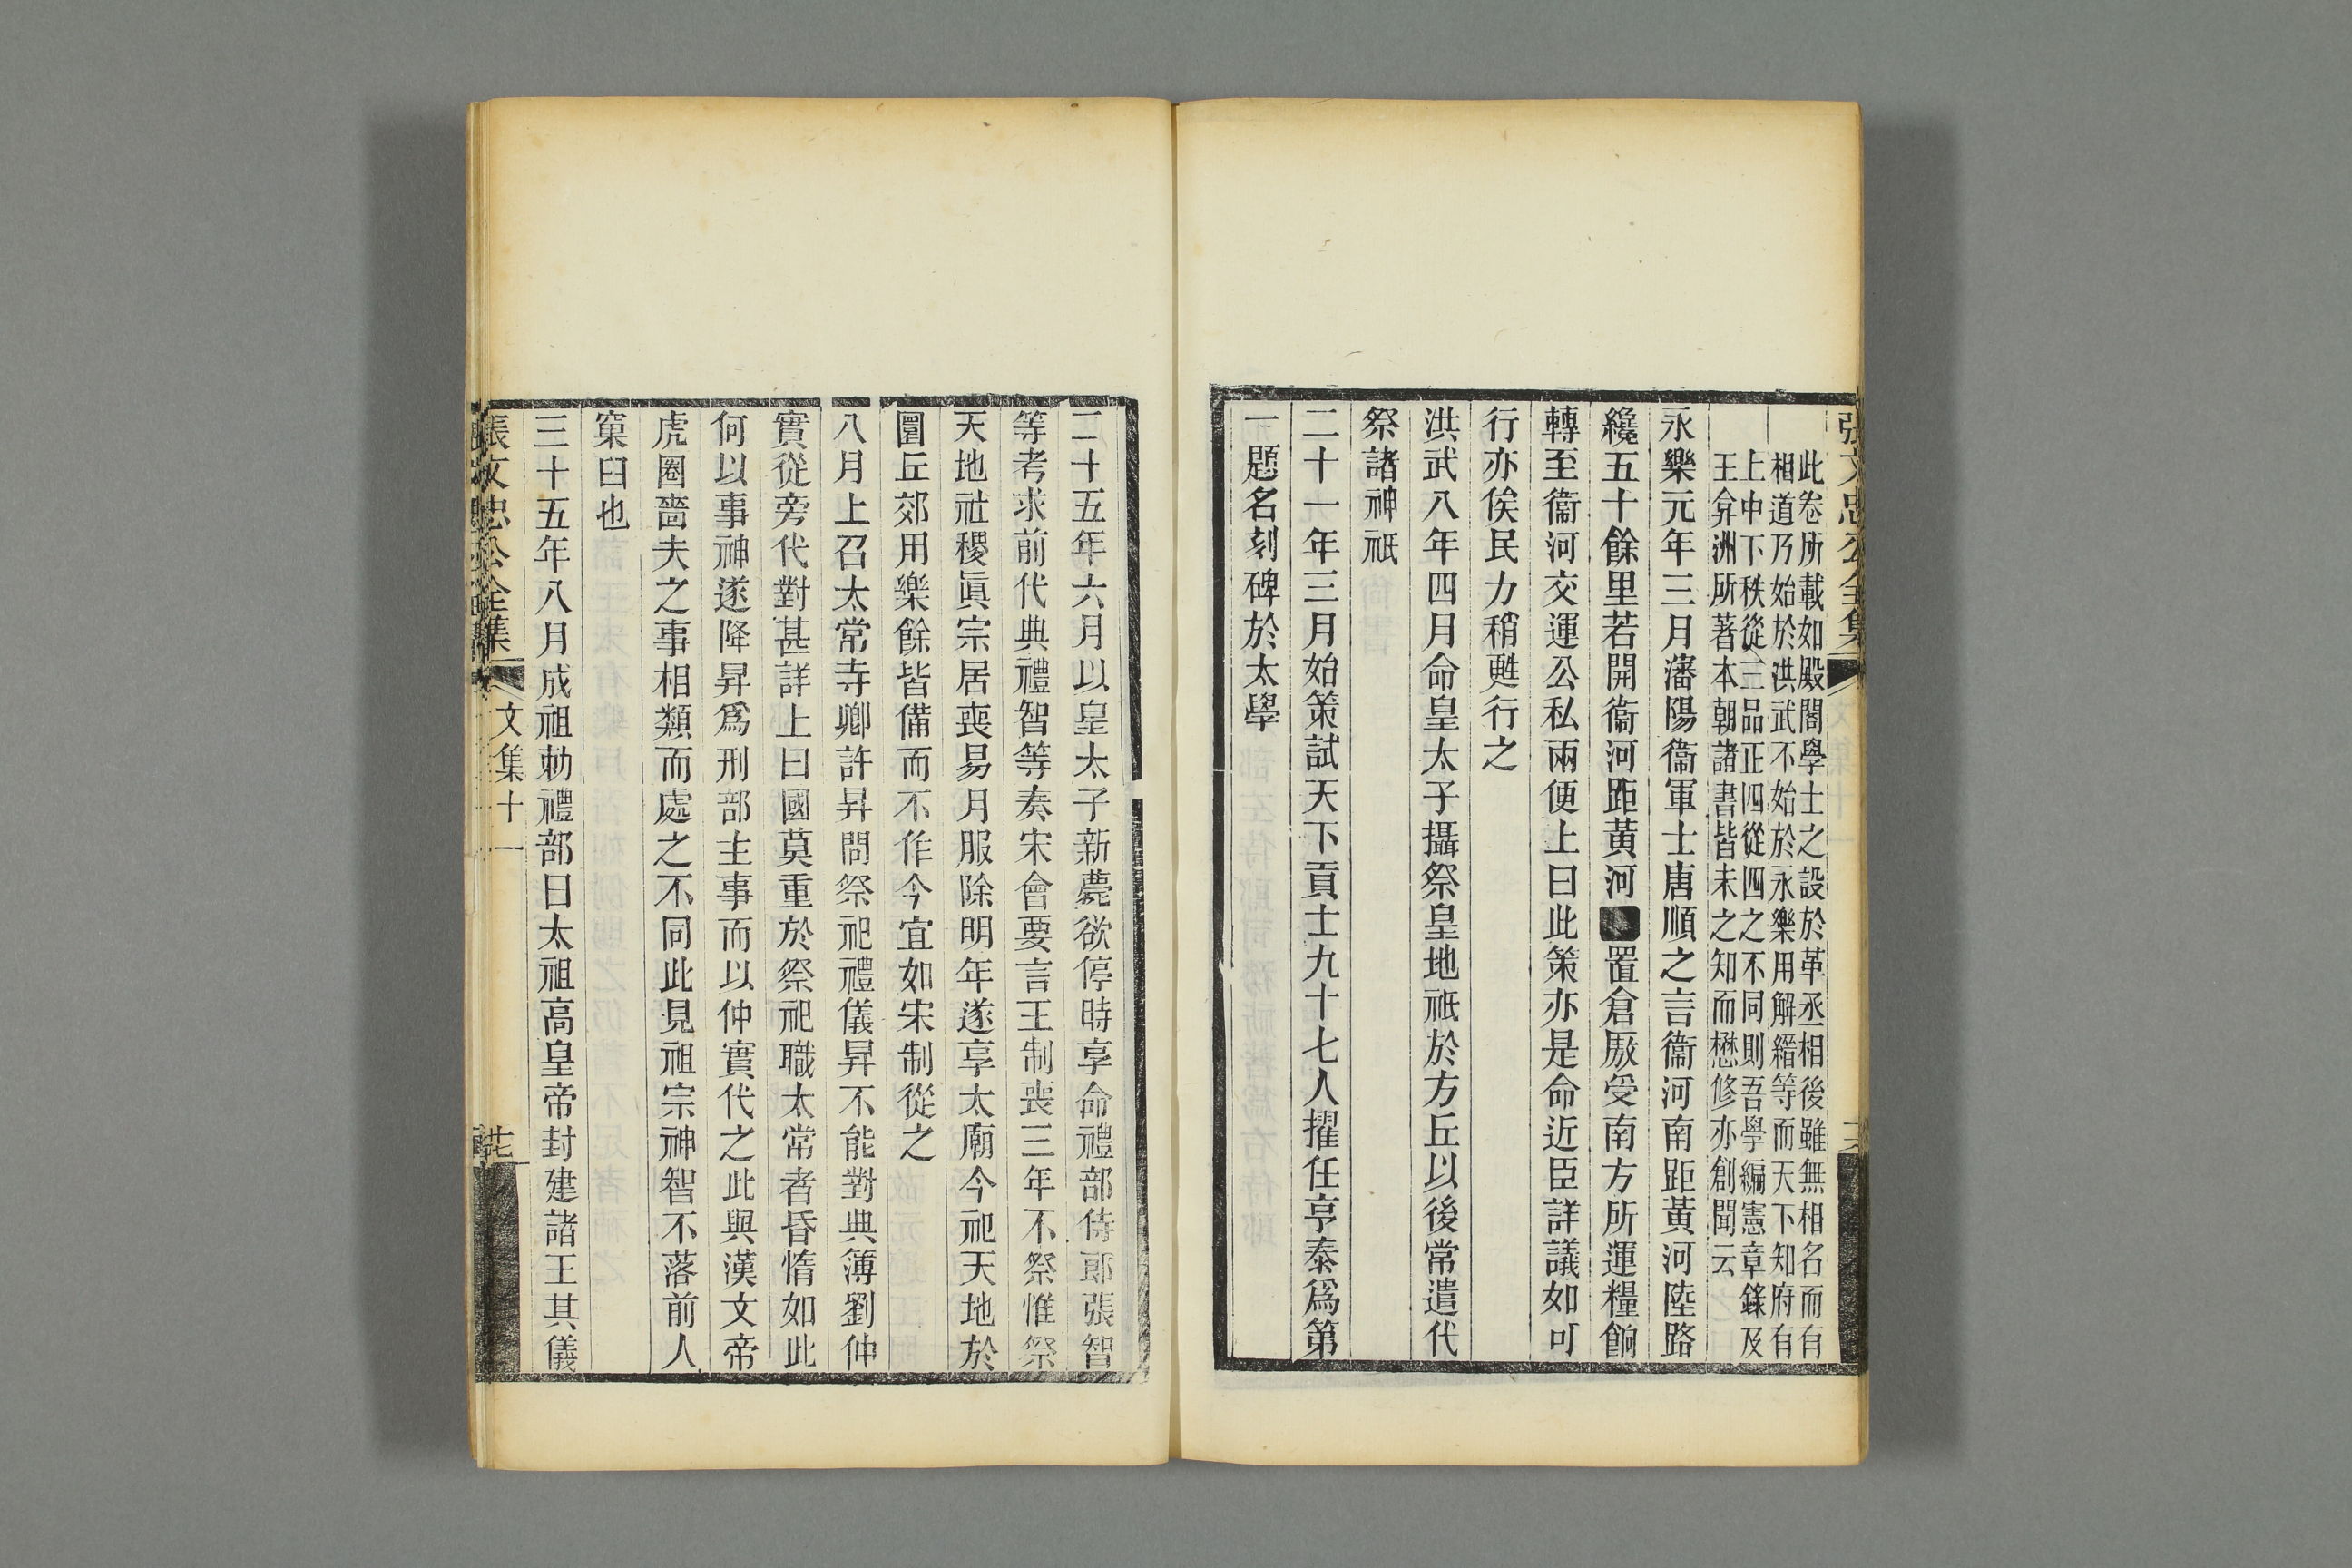 張文忠公全集
此卷所載如殿閣學士之設於革丞相後雖無相名而有
相道乃始於洪武不始於永樂用解縉等而天下知府有
上中下秩從三品正四從四之不同則吾學編憲章錄及
王弇洲所著本朝諸書皆未之知而懋修亦創聞云
永樂元年三月瀋陽衞軍士唐順之言衞河南距黃河陸路
纔五十餘里若開衞河距黃河置倉厫受南方所運糧餉
轉至衞河交運公私兩便上曰此策亦是命近臣詳議如可
行亦俟民力稍甦行之
洪武八年四月命皇太子攝祭皇地祇於方丘以後常遣代
祭諸神祇
二十一年三月始策試天下貢士九十七人擢任亨泰爲第
一題名刻碑於太學
二十五年六月以皇太子新薨欲停時享命禮部侍郎張智
等考求前代典禮智等奏宋會要言王制喪三年不祭惟祭
天地社稷眞宗居喪易月服除明年遂享太廟今祀天地於
圜丘郊用樂餘皆備而不作今宜如宋制從之
八月上召太常寺卿許昇問祭祀禮儀昇不能對典簿劉仲
實從旁代對甚詳上曰國莫重於祭祀職太常者昏惰如此
何以事神遂降昇爲刑部主事而以仲實代之此與漢文帝
虎圈嗇夫之事相類而處之不同此見祖宗神智不落前人
窠臼也
三十五年八月成祖勅禮部曰太祖高皇帝封建諸王其儀
張文忠公全集
文集十一